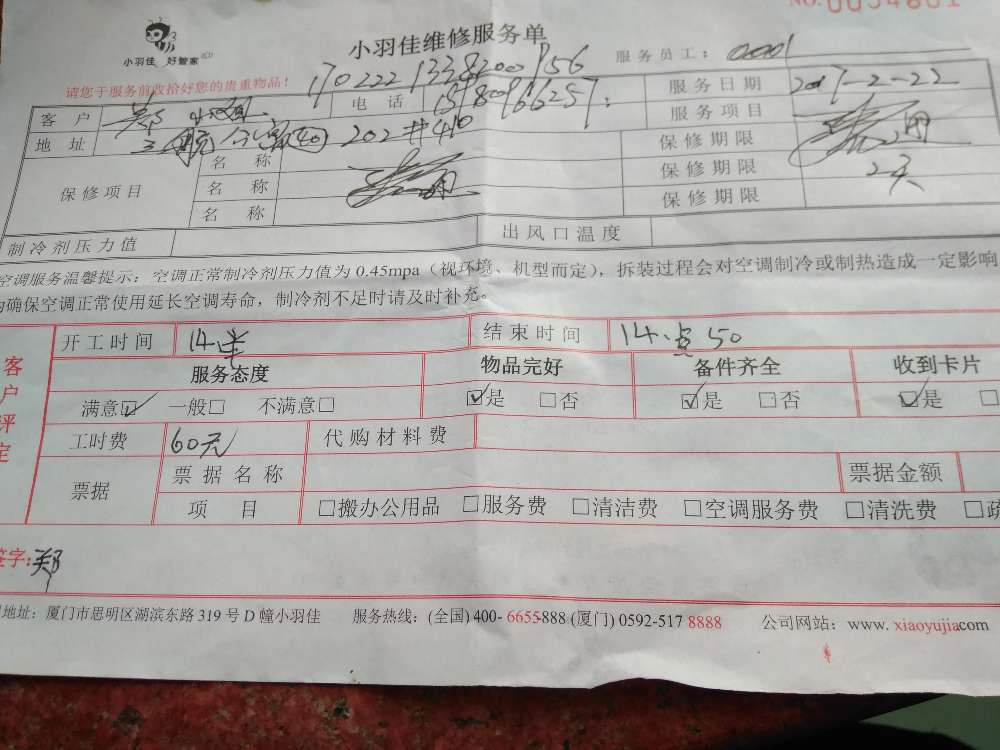 小羽佳 好管家
小羽佳维修服务单
服务员工: 0001
请您于服务前收拾好您的贵重物品!
客户
电话
服务日期 2017-2-22
地址 202 #
服务项目
保修项目
名称
保修期限
名称
保修期限 2天
名称
保修期限
制冷剂压力值
出风口温度
空调服务温馨提示: 空调正常制冷剂压力值为 0.45mpa (视环境、机型而定), 拆装过程会对空调制冷或制热造成一定影响
确保空调正常使用延长空调寿命, 制冷剂不足时请及时补充。
客户评定
开工时间 14半
结束时间 14点50
服务态度 物品完好 备件齐全 收到卡片
满意☑ 一般□ 不满意□ ☑是 □否 ☑是 □否 ☑是 □
工时费 60元 代购材料费
票据 票据名称 票据金额
项目 □搬办公用品 □服务费 □清洁费 □空调服务费 □清洗费 □疏
签字: 郑
地址: 厦门市思明区湖滨东路 319 号 D 幢小羽佳 服务热线: (全国) 400- 6655-888 (厦门) 0592-517 8888 公司网站: www. xiaoyujia.com